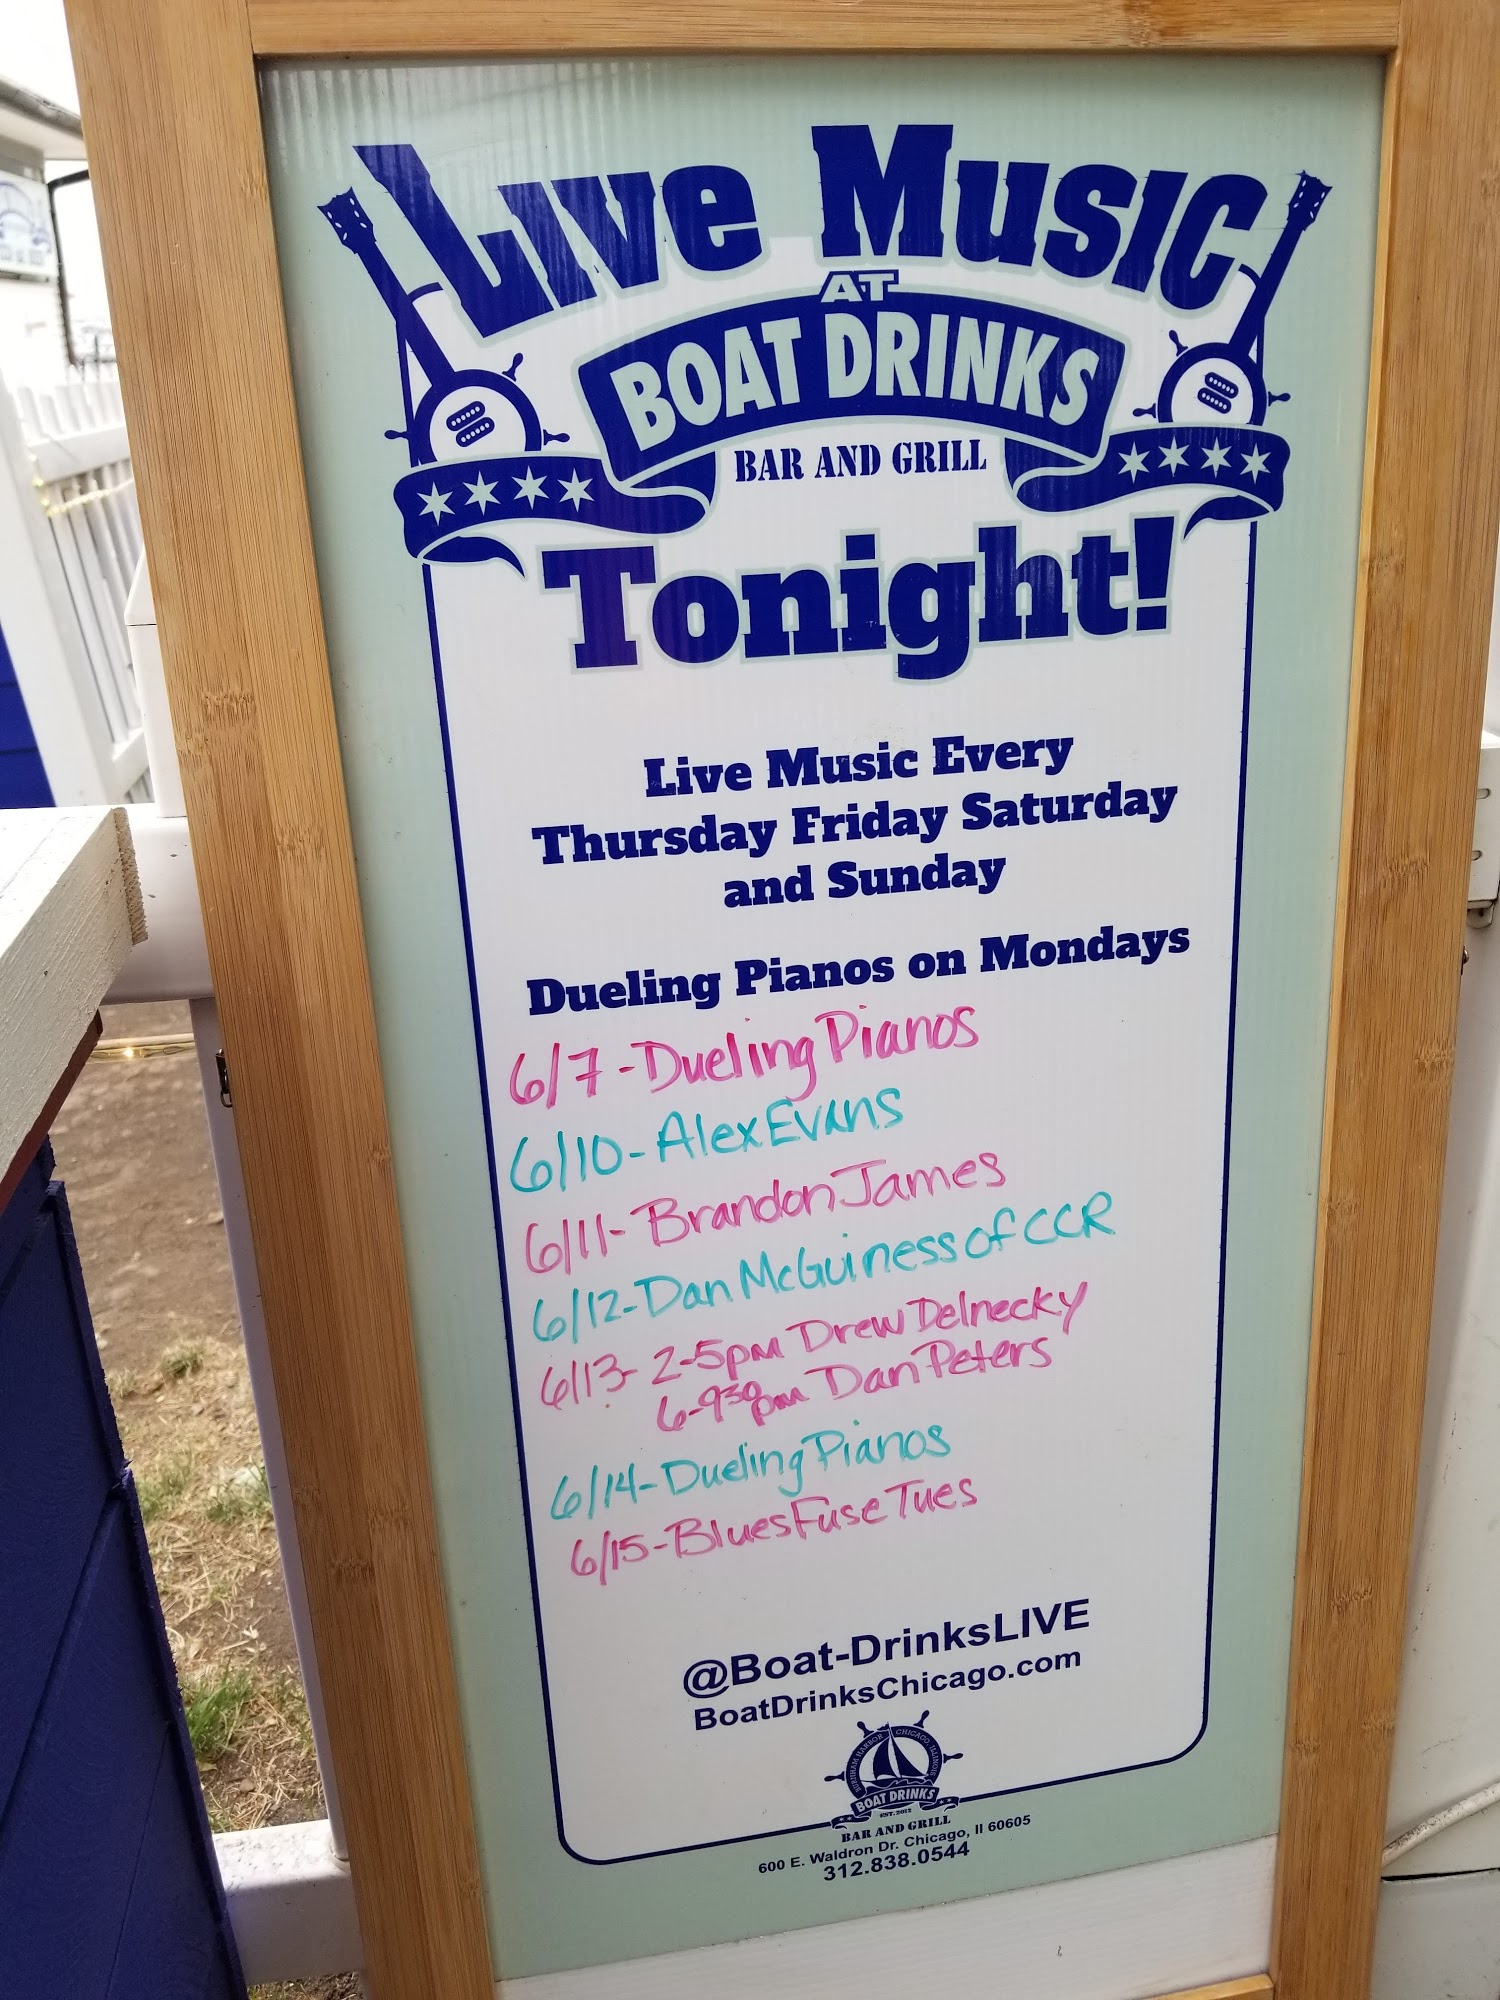 Live Music
AT
BOAT DRINKS
BAR AND GRILL
Tonight!
Live Music Every
Thursday Friday Saturday
and Sunday
Dueling Pianos on Mondays
6/7 - Dueling Pianos
6/10 - Alex Evans
6/11 - Brandon James
6/12 - Dan McGuiness of CCR
6/13 - 2-5pm Drew Delnecky
6-930pm Dan Peters
6/14 - Dueling Pianos
6/15 - Blues Fuse Tues
@Boat-DrinksLIVE
BoatDrinksChicago.com
BURNHAM HARBOR CHICAGO, ILLINOIS
BOAT DRINKS
EST. 2012
BAR AND GRILL
600 E. Waldron Dr. Chicago, Il 60605
312.838.0544